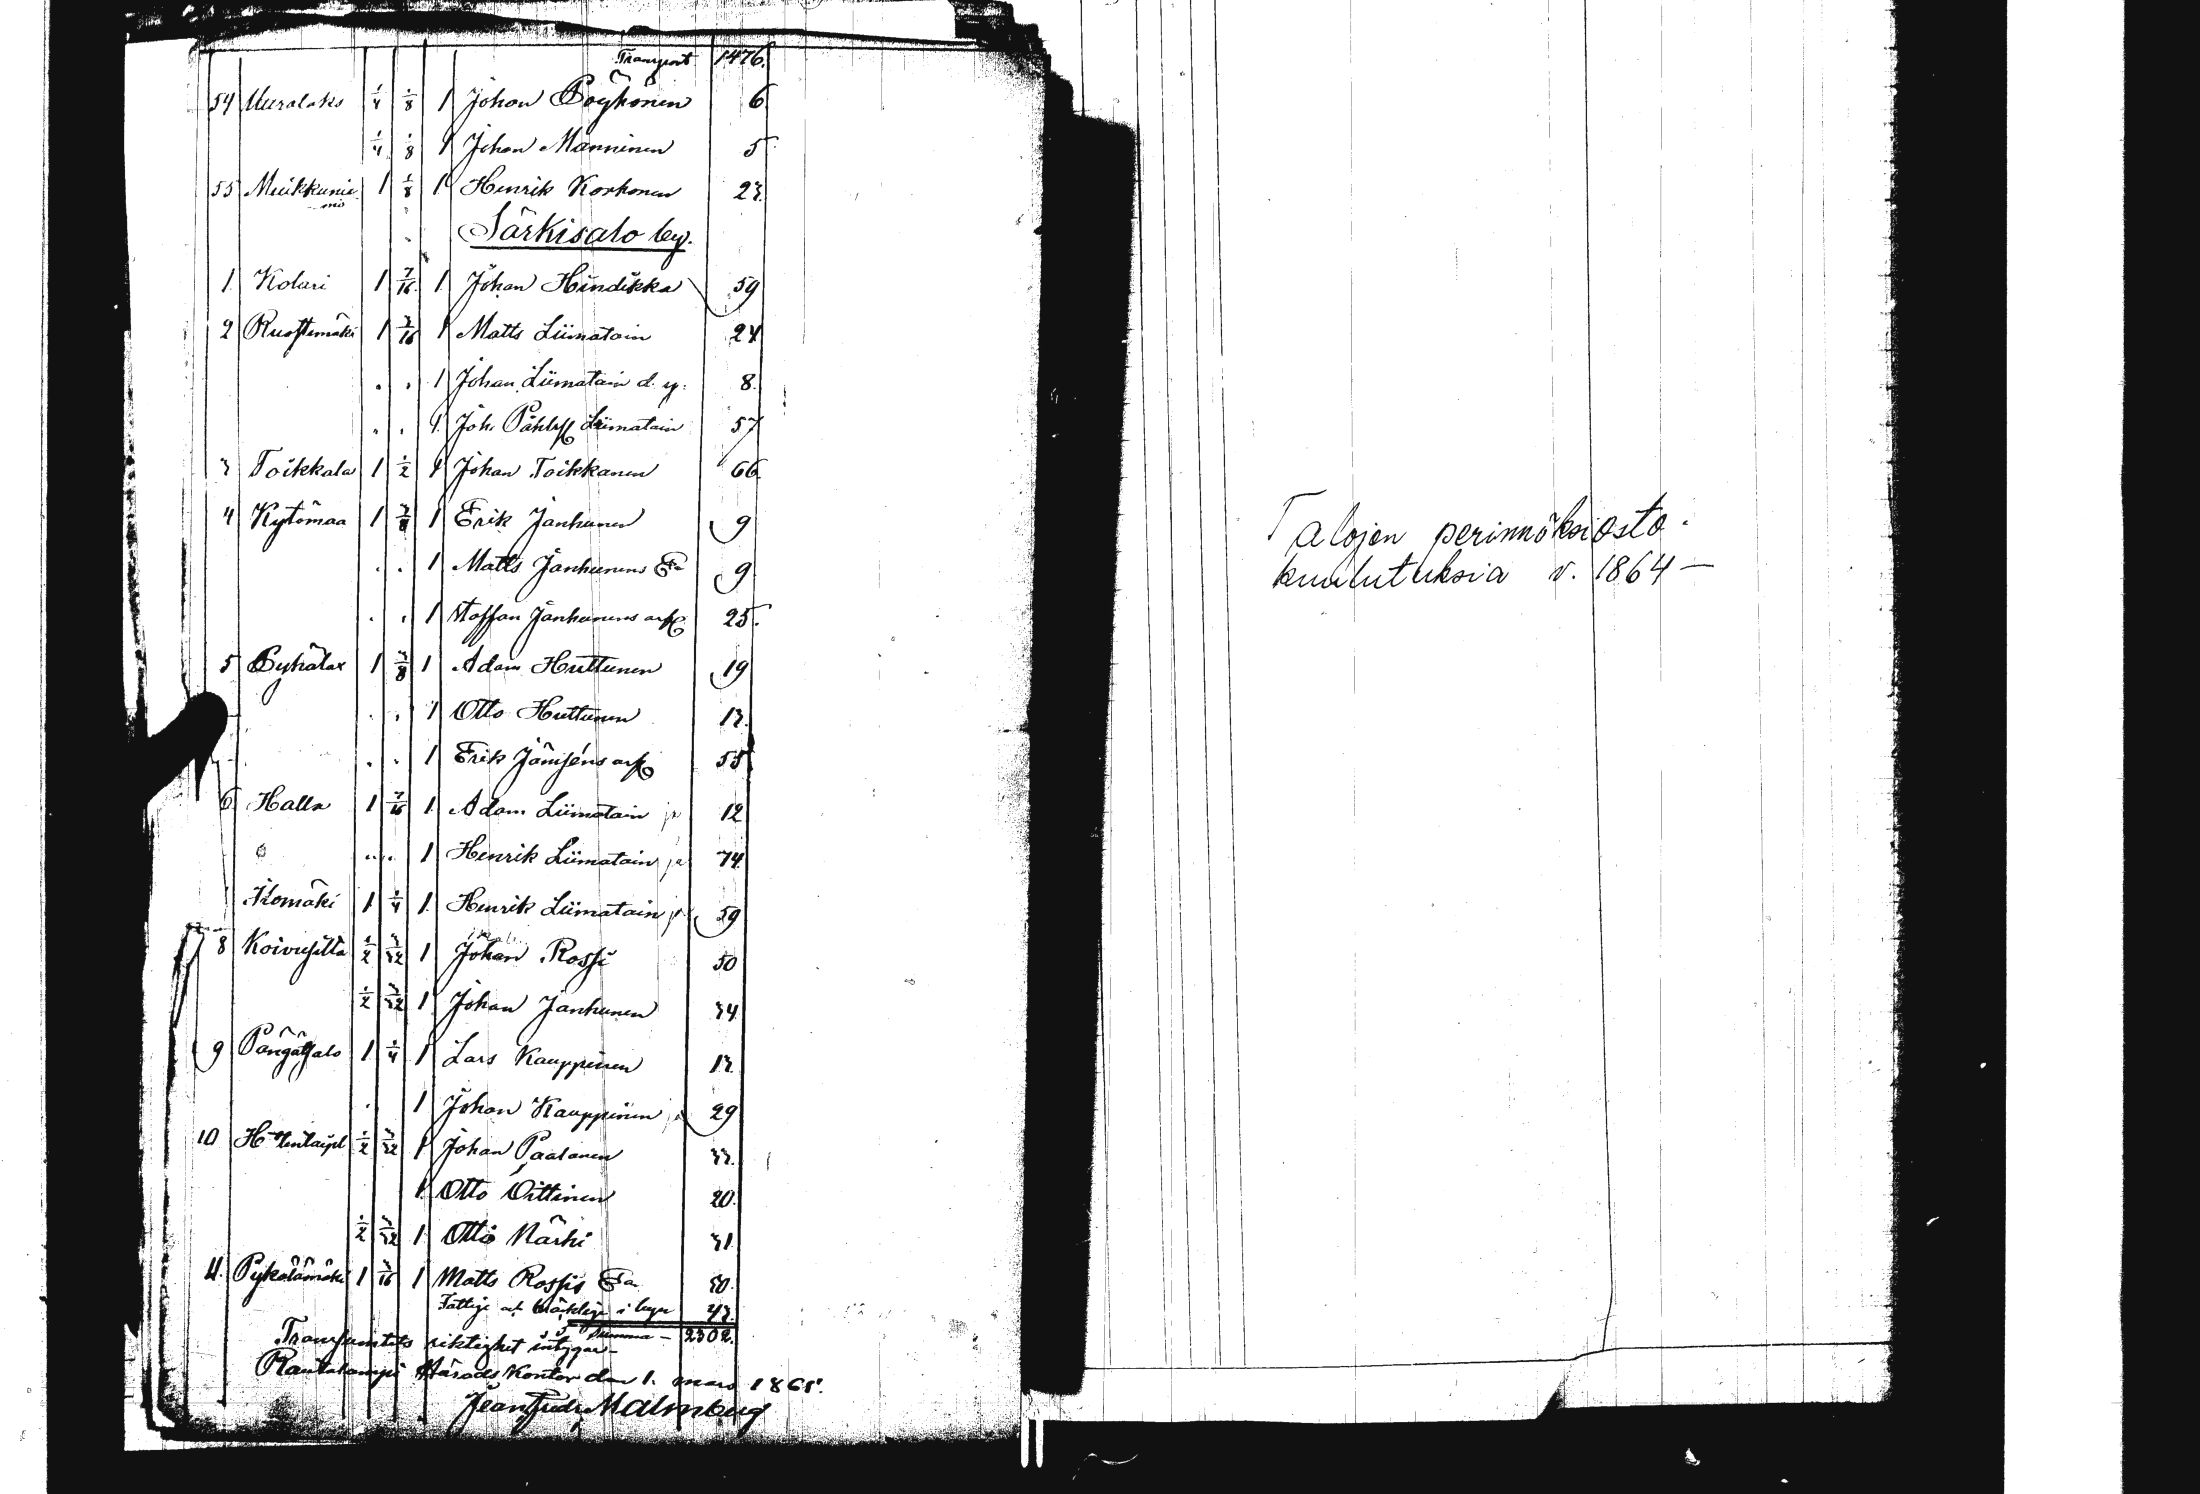 Transport 1476.
54 Uuralaks 1/4 1/8 1 Johan Pöyhönen 6
1/4 1/8 1 Johan Manninen 5
55 Muikkunie 1 1/8 1 Henrik Korhonen 23.
mi
Särkisalo by.
1. Kolari 1 7/16 1 Johan Hindikka 59
2 Ruostemäki 1 3/16 1 Matts Liimatain 24
" " 1 Johan Liimatain d. y. 8.
" " 1 Joh. Påhls Liimatain 57
3 Toikkala 1 1/2 1 Johan Toikkanen 66.
4 Kytömaa 1 3/8 1 Erik Janhunen 9
" " 1 Matts Janhunens Ea 9
" " 1 Staffan Janhunens arf 25.
5 Pyhälax 1 3/8 1 Adam Huttunen 19
" " 1 Otto Huttunen 13.
" " 1 Erik Jämsens arf 55
6 Halla 1 7/16 1 Adam Liimatain 12
" " 1 Henrik Liimatain 74.
Ilomäki 1 1/4 1 Henrik Liimatain 59
8 Koivusilta 1/2 3/32 1 Johan Rossi 50
1/2 3/32 1 Johan Janhunen 34
9 Pängätsalo 1 1/4 1 Lars Kauppinen 13.
1 Johan Kauppinen 29
10 1/2 3/32 1 Johan Paalanen 33.
1 Otto Oittinen 20.
1/2 3/32 1 Otto Närhi 31.
11. Pykälämäki 1 3/16 1 Matts Rossis Ea 50.
Fattige och bräcklige i byn 43.
Summa – 2302.
Transumtets riktighet intygar –
Rautalampi Härads Kontor den 1. mars 1865.
Jean Fredr Malmberg
Talojen perinnöksiosto-
kuulutuksia v. 1864 —